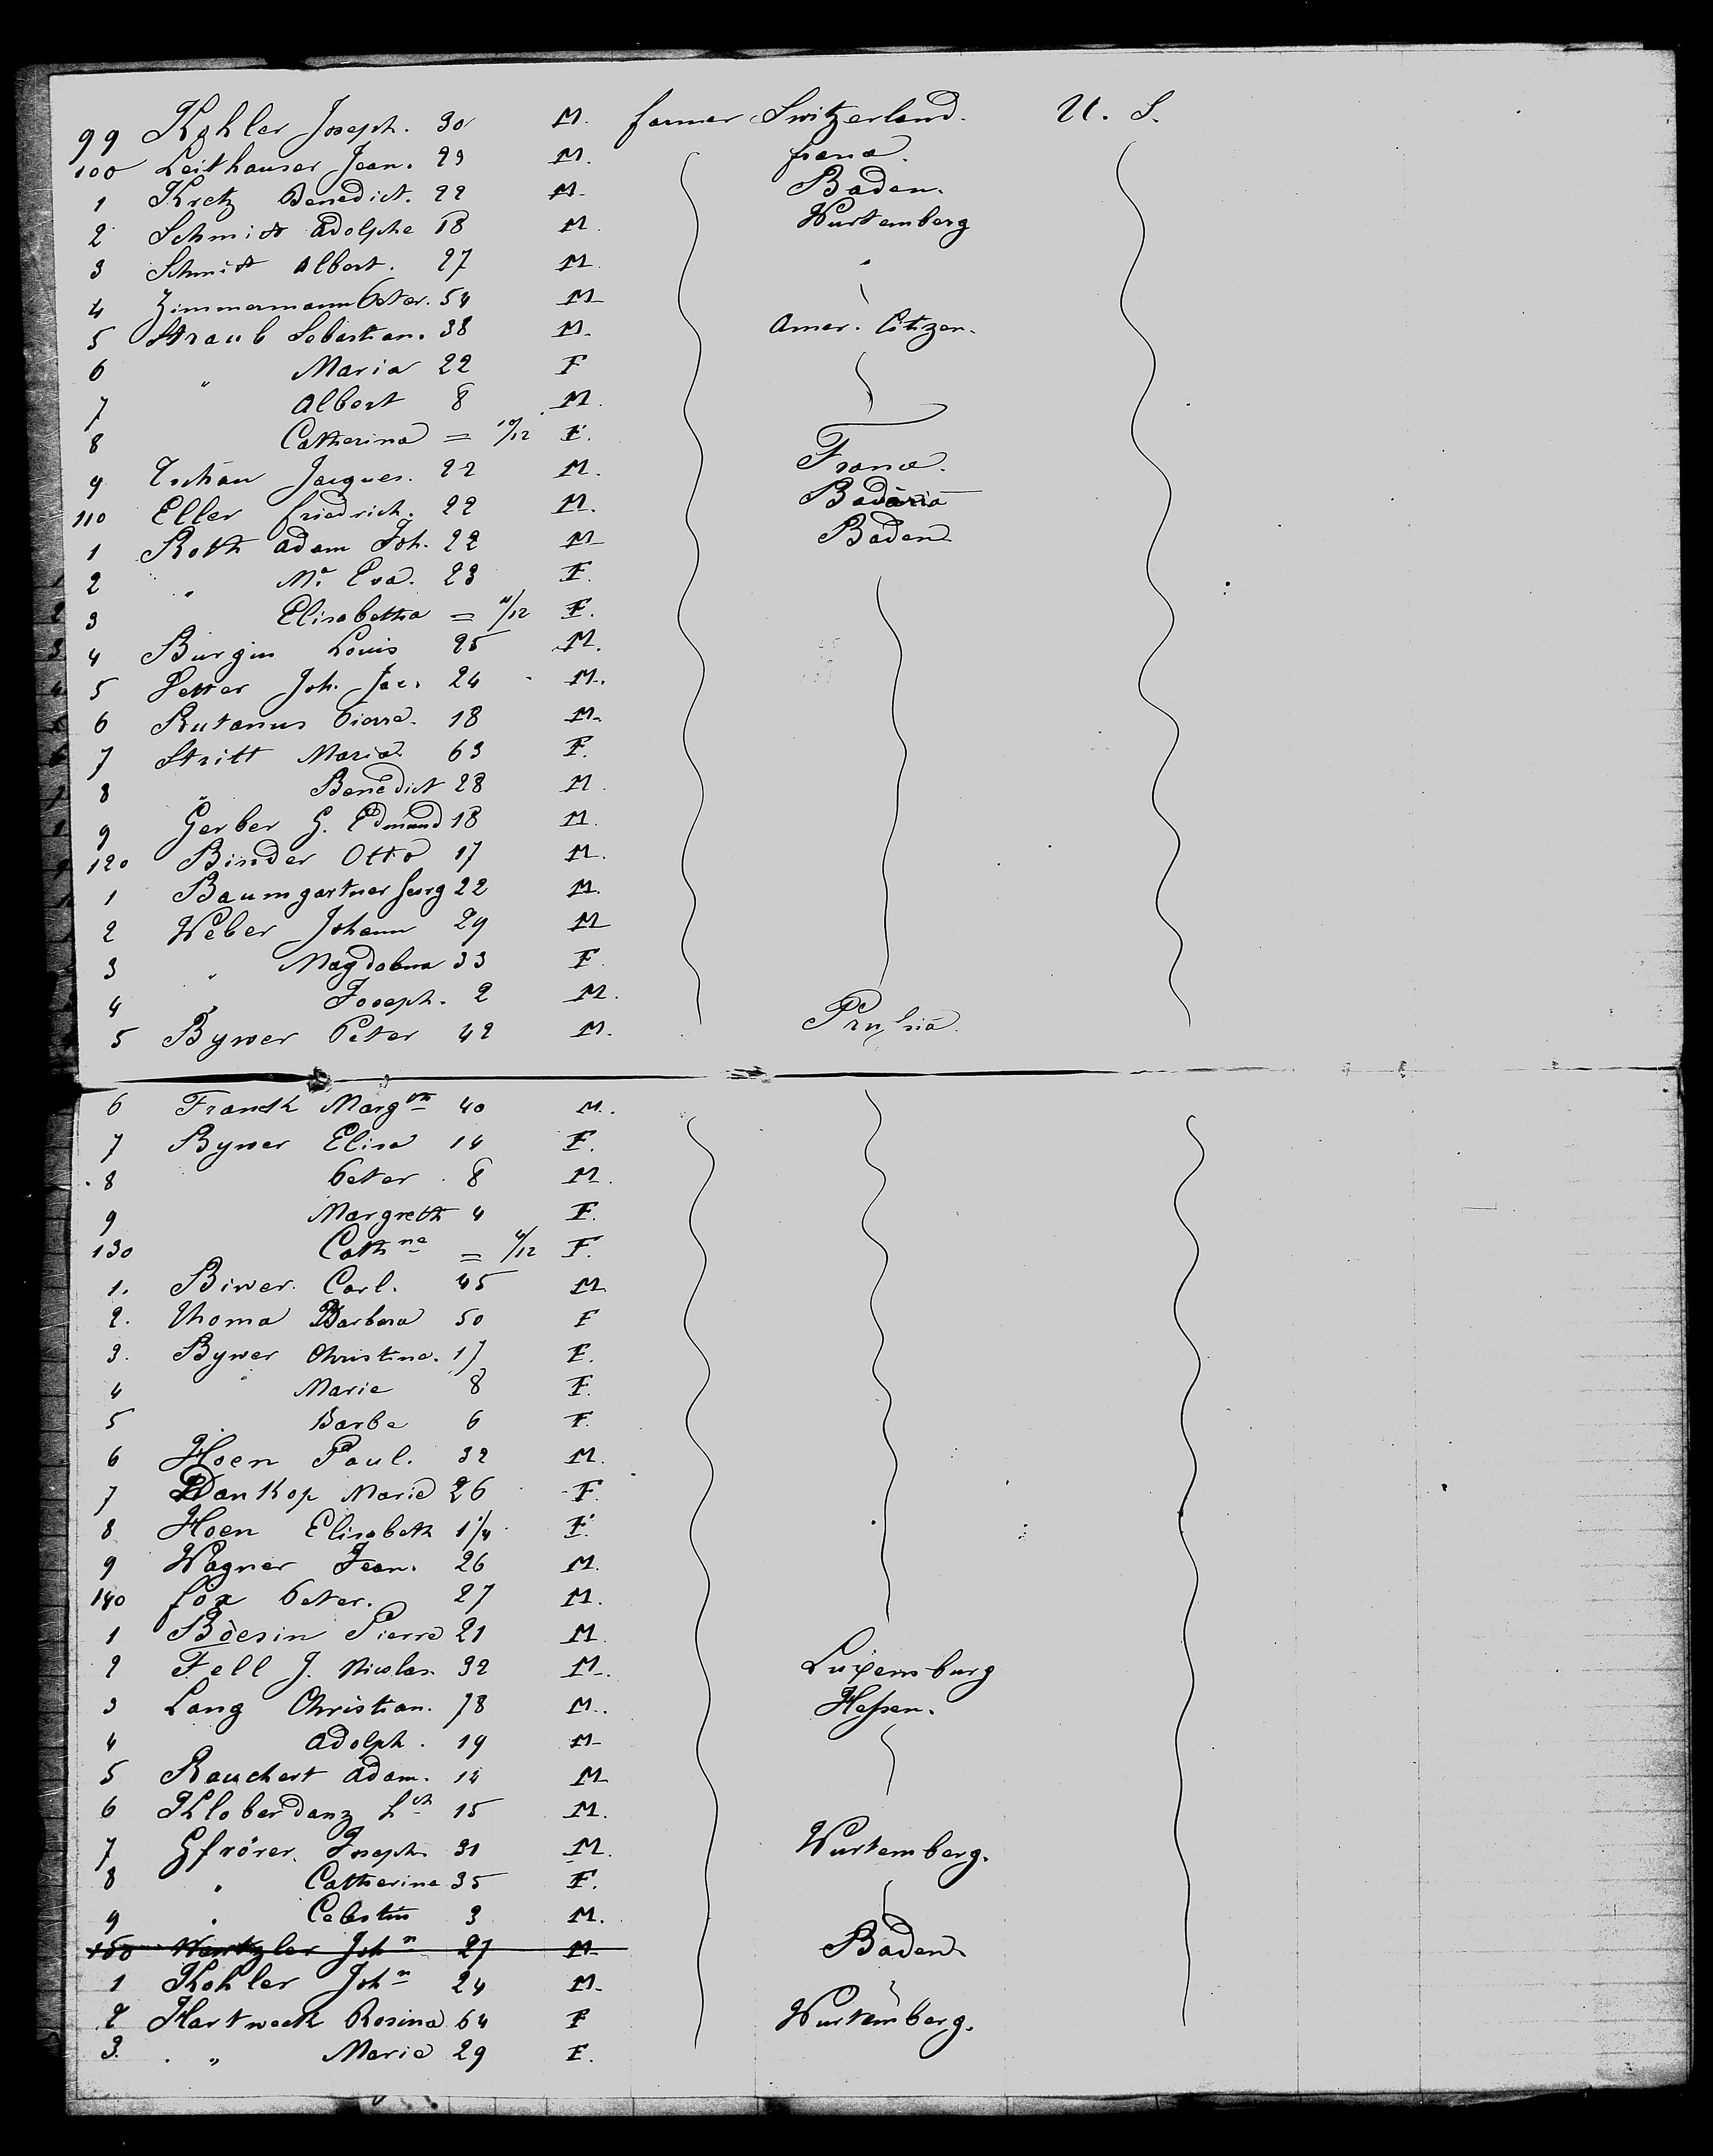 99 Kohler Joseph. 30 M. farmer Switzerland. U. S.
100 Leithauser Jean. 29 M. franc.
1 Kretz Benedict. 22 M. Baden.
2 Schmidt Adolphe 18 M. Wurtemberg
3 Schmidt Albert. 27 M. "
4 Zimmermann Peter. 54 M
5 Straub Sebastian. 38 M. Amer. Citizen.
6 " Maria 22 F
7 Albert 8 M.
8 Catherina = 10/12 F.
9 Jacques. 22 M. France.
110 Eller friedrich. 22 M. Bavaria
1 Roth Adam Joh. 22 M Baden
2 " Ma. Eva. 23 F.
3 Elisabetha = 11/12 F.
4 Burgin Louis 25 M.
5 Joh. Jac. 24 M.
6 Rutanus Pierre. 18 M.
7 Stritt Maria 63 F.
8 " Benedict 28 M.
9 Gerber G. Edmund 18 M.
120 Binder Otto 17 M.
1 Baumgartner Georg 22 M.
2 Weber Johann 29 M
3 " Magdalena 33 F.
4 Joseph. 2 M.
5 Bywer Peter 42 M. Prussia.
6 Frandk Margth 40 M.
7 Bywer Elisa 14 F.
8 Peter 8 M.
9 Margreth 4 F.
130 Cathne = 4/12 F.
1. Biwer. Carl. 45 M
2. Thoma Barbara 50 F
3. Bywer Christine. 17 F.
4 " Marie 8 F.
5 Barbe 6 F.
6 Hoen Paul. 32 M.
7 Dankop Marie 26 F.
8 Hoen Elisabeth 1 1/4 F.
9 Wagner Jean. 26 M.
140 fox Peter. 27 M.
1 Böesin Pierre 21 M.
2 Fell J. Nicolas. 32 M. Luxemburg
3 Lang Christian. 78 M. Hessen.
4 Adolph. 19 M
5 Rauchert Adam. 14 M
6 Kloberdanz Hch 15 M.
7 Gfrörer. Joseph. 31 M. Wurtemberg.
8 " Catherine 35 F.
9 " Celestin 3 M.
150 Wentzler John 27 M. Baden
1 Kohler John 24 M.
2 Hartweck Rosina 64 F Wurtemberg.
3. " Marie 29 F.